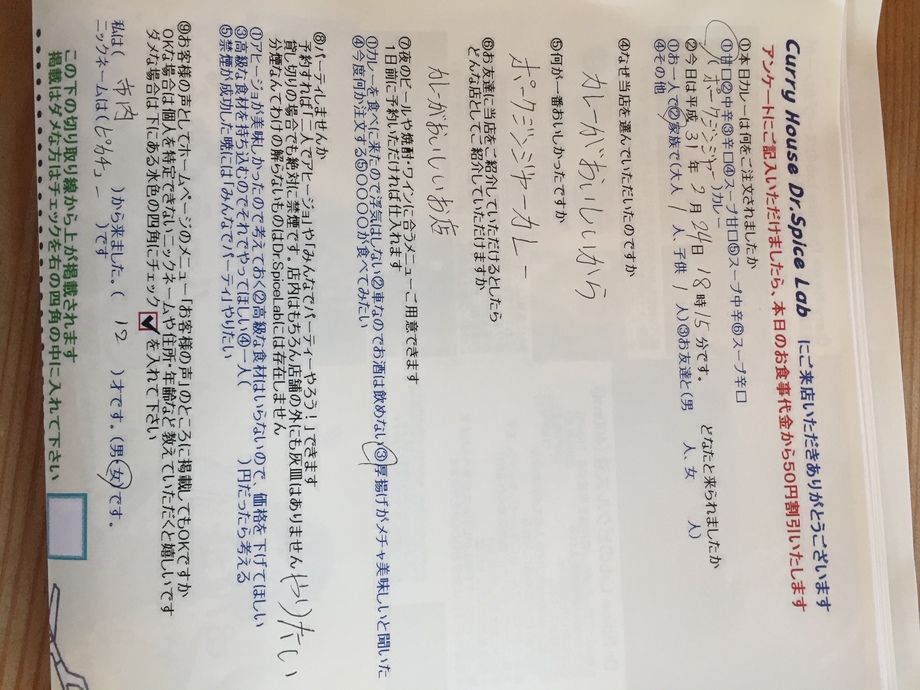 Curry House Dr.Spice Lab にご来店いただきありがとうございます
アンケートにご記入いただけましたら、本日のお食事代金から50円割引いたします
①本日カレーは何をご注文されましたか
①甘口②中辛③辛口④スープ甘口⑤スープ中辛⑥スープ辛口
(ポークジンジャー)カレー
②今日は平成31年2月24日18時15分です。 どなたと来られましたか
①お一人で②家族で(大人 1 人、子供 1 人)③お友達と(男 人、女 人)
④その他
④なぜ当店を選んでいただいたのですか
カレーがおいしいから
⑤何が一番おいしかったですか
ポークジンジャーカレー
⑥お友達に当店をご紹介していただけるとしたら
どんな店としてご紹介していただけますか
カレーがおいしいお店
⑦夜のビールや焼酎・ワインに合うメニューご用意できます
1日前に予約いただければ仕入れます
①カレーを食べに来たので浮気はしない②車なのでお酒は飲めない③厚揚げがメチャ美味しいと聞いた
④今度何か注文する⑤〇〇〇〇が食べてみたい
⑧パーティしませんか
予約すれば「二人でアヒージョ」や「みんなでパーティーやろう!」できます
貸し切りの場合でも絶対に禁煙です。店内はもちろん店舗の外にも灰皿はありません
分煙なんてわけの解らないものはDr.SpiceLabには存在しません
やりたい
①アヒージョが美味しかったので考えておく②高級な食材はいらないので、価格を下げてほしい
③高級な食材を持ち込むのでそれでやってほしい④一人( )円だったら考える
⑤禁煙が成功した暁には「みんなでパーティ」やりたい
⑨お客様の声としてホームページのメニュー「お客様の声」のところに掲載してもOKですか
OKな場合は個人を特定できないニックネームや住所・年齢など教えていただくと嬉しいです
ダメな場合は下にある水色の四角にチェック☑を入れて下さい
私は( 寺内 )から来ました。( 12 )才です。(男・女)です。
ニックネームは(ピカチュー )です
この下の切り取り線から上が掲載されます
掲載はダメな方はチェックを右の四角の中に入れて下さい